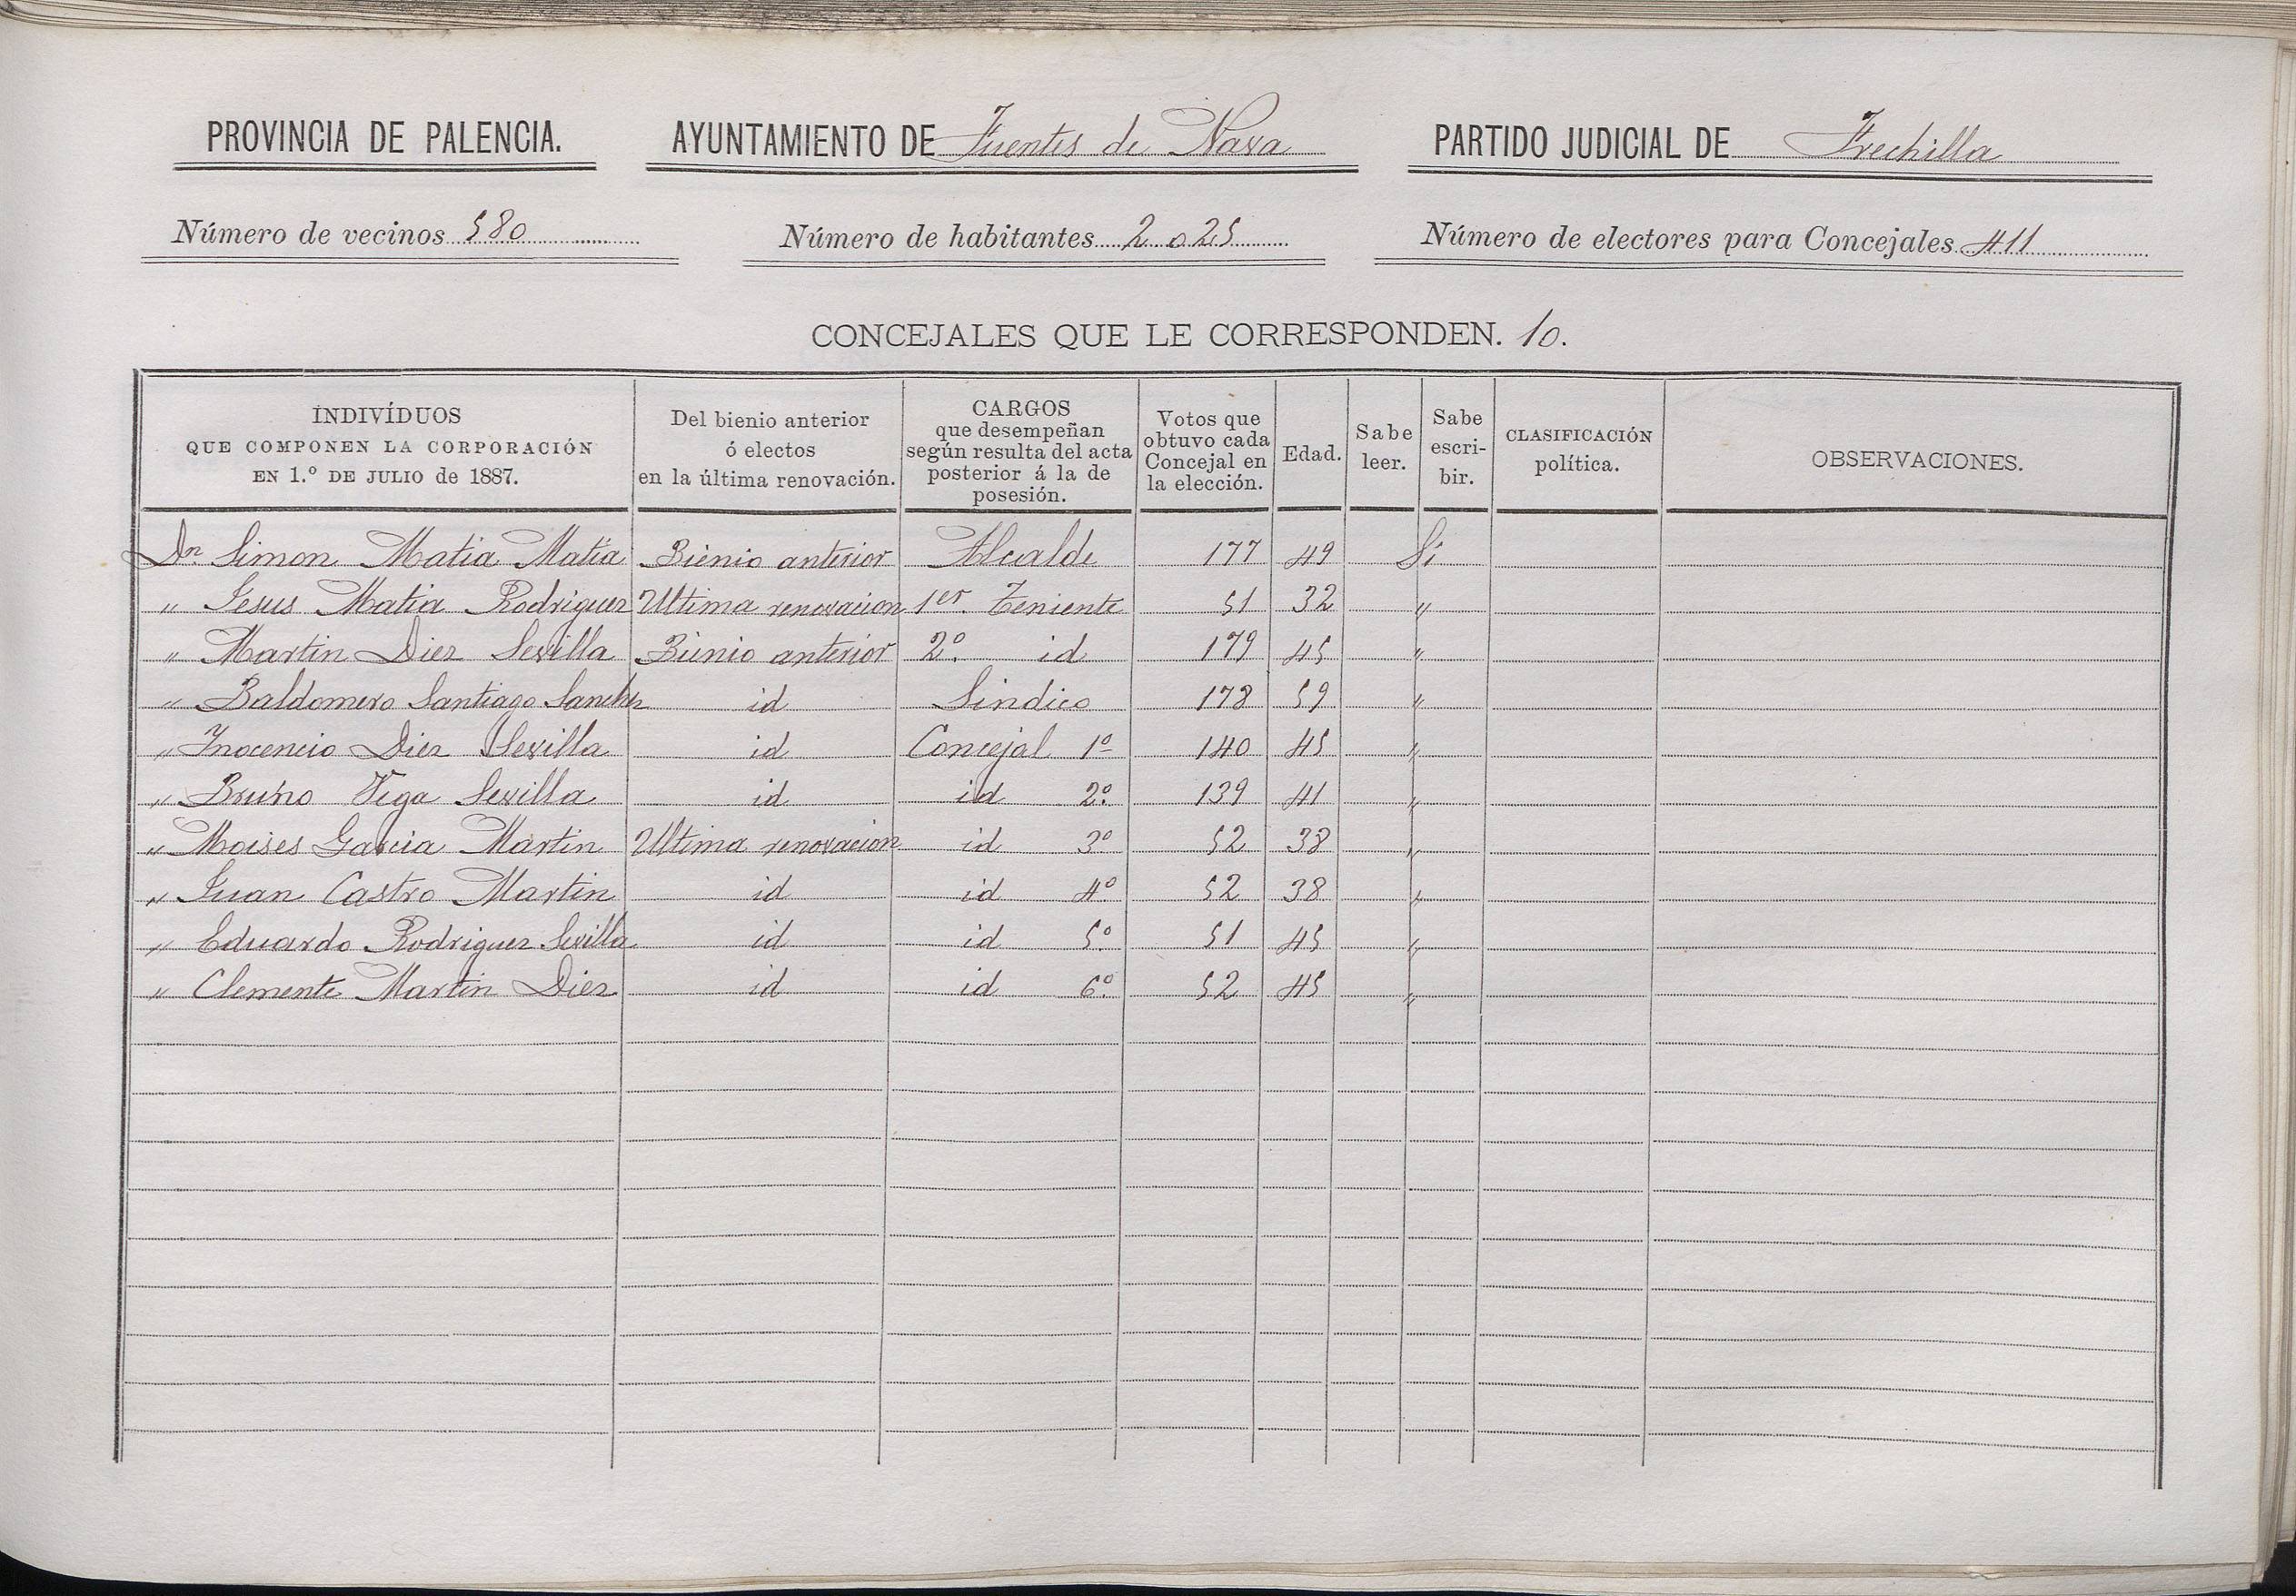 PROVINCIA DE PALENCIA. AYUNTAMIENTO DE Fuentes de Nava PARTIDO JUDICIAL DE Frechilla
Número de vecinos 580 Número de habitantes 2.025 Número de electores para Concejales 411
CONCEJALES QUE LE CORRESPONDEN. 10.
INDIVÍDUOS
QUE COMPONEN LA CORPORACIÓN
EN 1.º DE JULIO de 1887.
Del bienio anterior
ó electos
en la última renovación.
CARGOS
que desempeñan
según resulta del acta
posterior á la de
posesión.
Votos que
obtuvo cada
Concejal en
la elección.
Edad.
Sabe
leer.
Sabe
escri-
bir.
CLASIFICACIÓN
política.
OBSERVACIONES.
Dn Simon Matia Matia Bienio anterior Alcalde 177 49 Si
" Jesus Matia Rodriguez Ultima renovacion 1er. Teniente 51 32 "
" Martin Diez Sevilla Bienio anterior 2º. id 179 45 "
" Baldomero Santiago Sanchez id Sindico 178 59 "
" Inocencio Diez Sevilla id Concejal 1º 140 45 "
" Bruno Vega Sevilla id id 2º. 139 41 "
" Moises Garcia Martin Ultima renovacion id 3º 52 38 "
" Juan Castro Martin id id 4º 52 38 "
" Eduardo Rodriguez Sevilla id id 5º 51 45 "
" Clemente Martin Diez id id 6º. 52 45 "